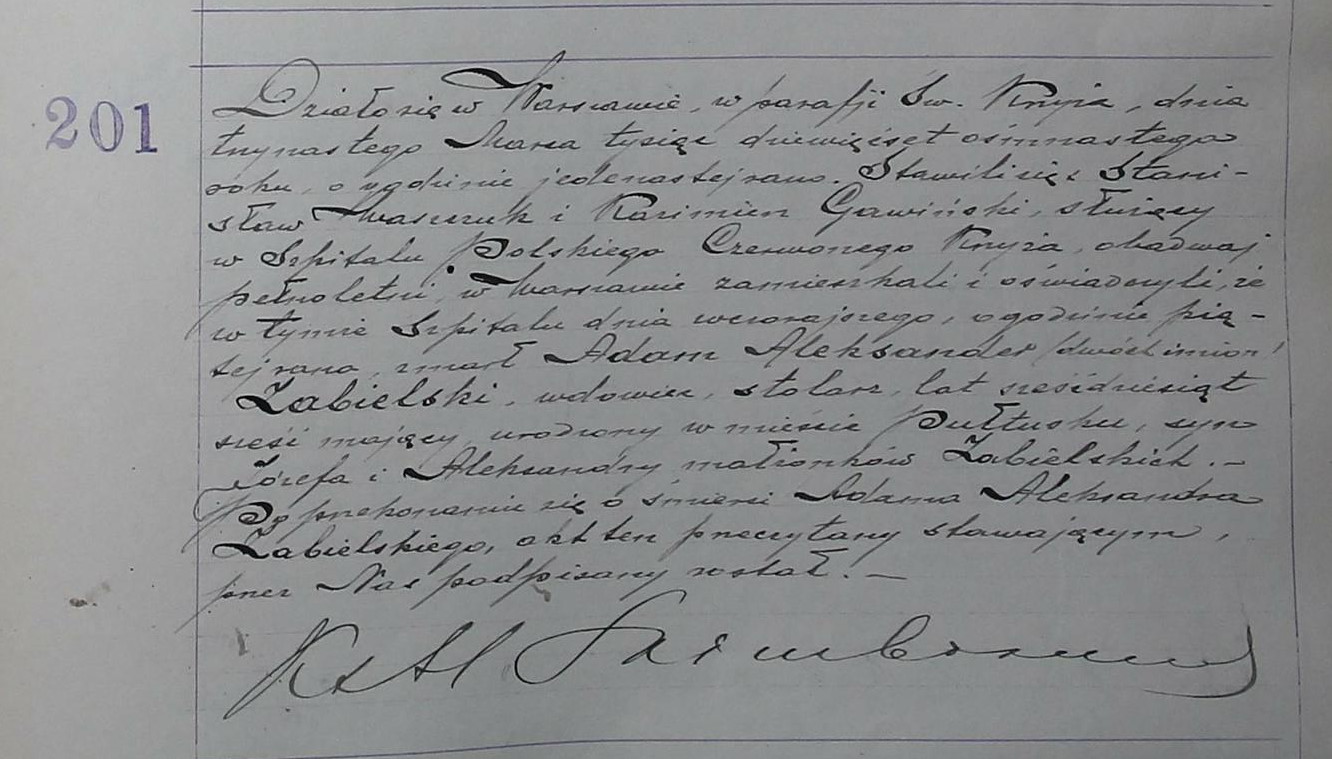 201
Działo się w Warszawie, w parafji Św. Krzyża, dnia
trzynastego Marca tysiąc dziewięćset ośmnastego
roku, o godzinie jedenastej rano. Stawili się: Stani-
sław Waszczuk i Kazimierz Gawiński, służący
w Szpitalu Polskiego Czerwonego Krzyża, obadwaj
pełnoletni, w Warszawie zamieszkali i oświadczyli, że
w tymże Szpitalu dnia wczorajszego, o godzinie pią-
tej rano, zmarł Adam Aleksander (dwóch imion)
Zabielski, wdowiec, stolarz, lat sześćdziesiąt
sześć mający, urodzony w mieście Pułtusku, syn
Józefa i Aleksandry małżonków Zabielskich. —
Po przekonaniu się o śmierci Adama Aleksandra
Zabielskiego, akt ten przeczytany stawającym,
przez Nas podpisany został. —